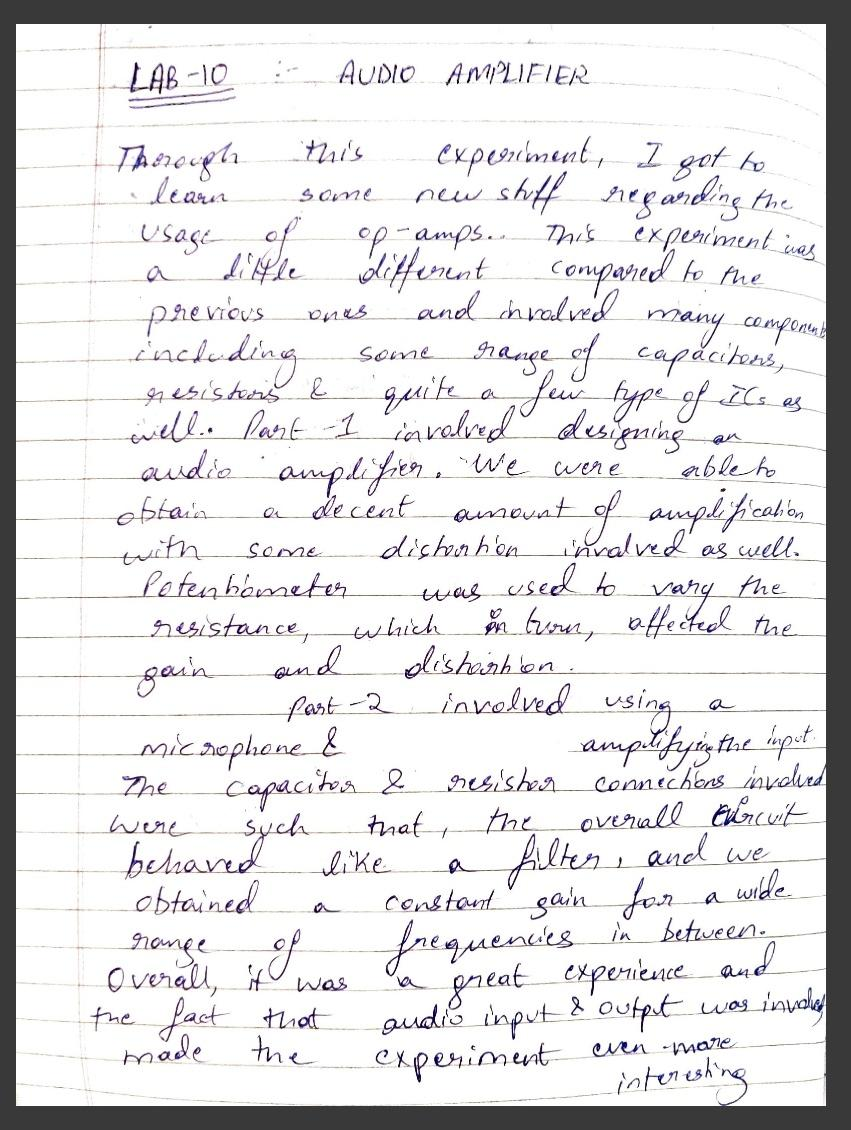 LAB-10 :- AUDIO AMPLIFIER
Thorough this experiment, I got to
learn some new stuff regarding the
usage of op-amps.. This experiment was
a little different compared to the
previous ones and involved many components
including some range of capacitors,
resistors & quite a few type of ICs as
well. Part-1 involved designing an
audio amplifier. We were able to
obtain a decent amount of amplification
with some distortion involved as well.
Potentiometer was used to vary the
resistance, which in turn, affected the
gain and distortion.
Part-2 involved using a
microphone & amplifying the input.
The capacitor & resistor connections involved
were such that, the overall circuit
behaved like a filter, and we
obtained a constant gain for a wide
range of frequencies in between.
Overall, it was a great experience and
the fact that audio input & output was involved
made the experiment even more
interesting